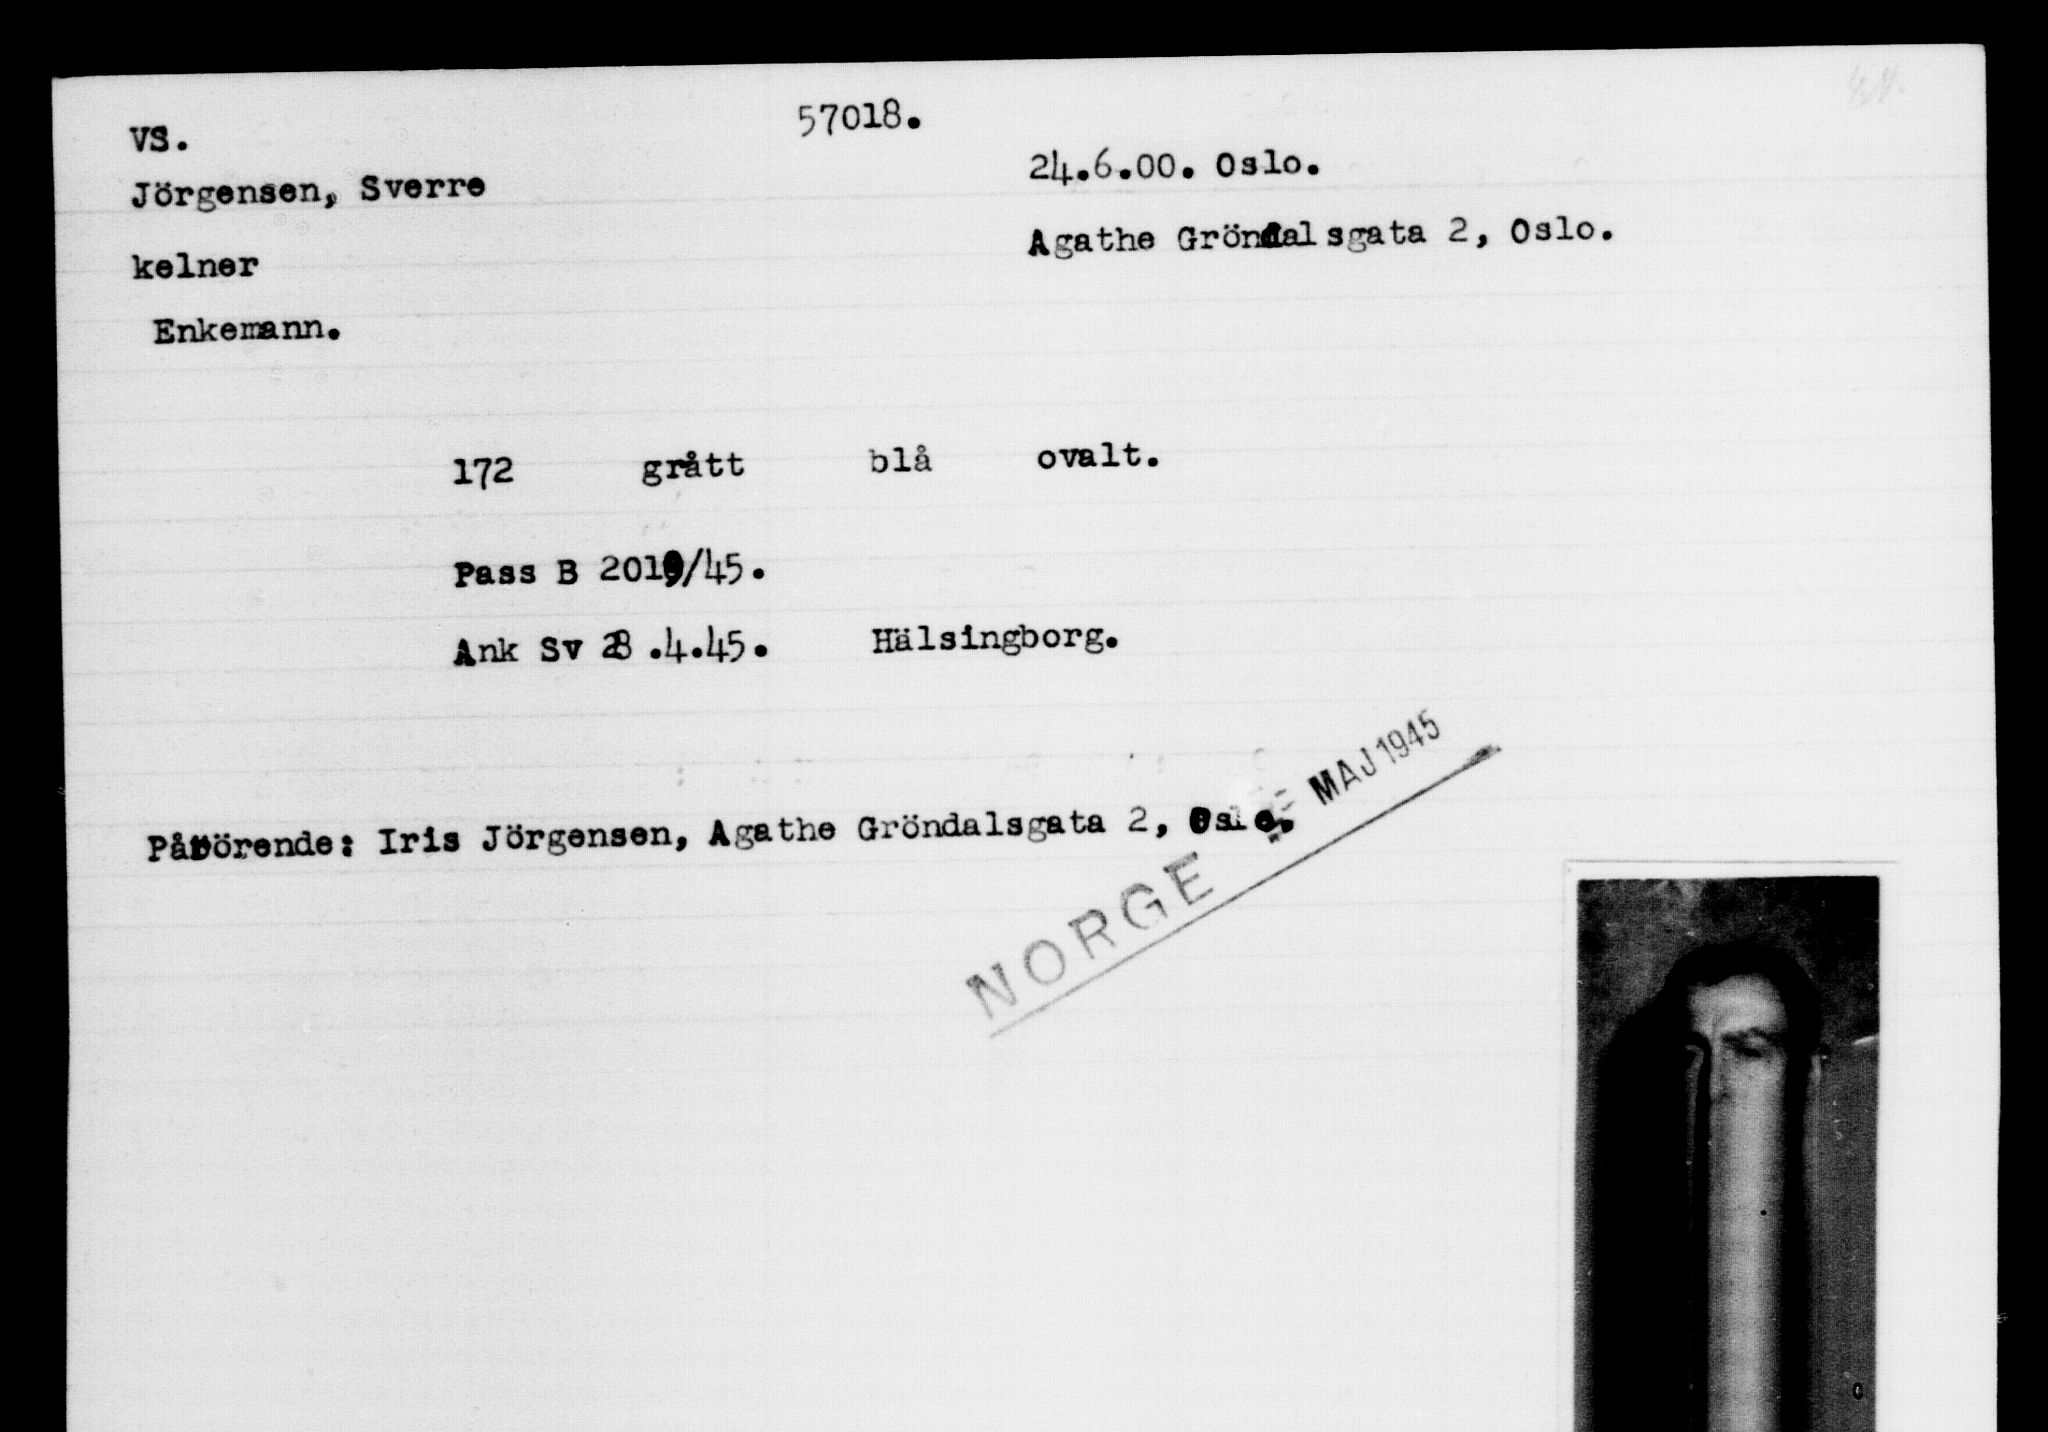 57018.
VS.
24.6.00. Oslo.
Jörgensen, Sverre
Agathe Gröndalsgata 2, Oslo.
kelner
Enkemann.
172 grått blå ovalt.
Pass B 2019/45.
Ank Sv 28.4.45. Hälsingborg.
MAJ 1945
Pårörende: Iris Jörgensen, Agathe Gröndalsgata 2, Oslo.
NORGE